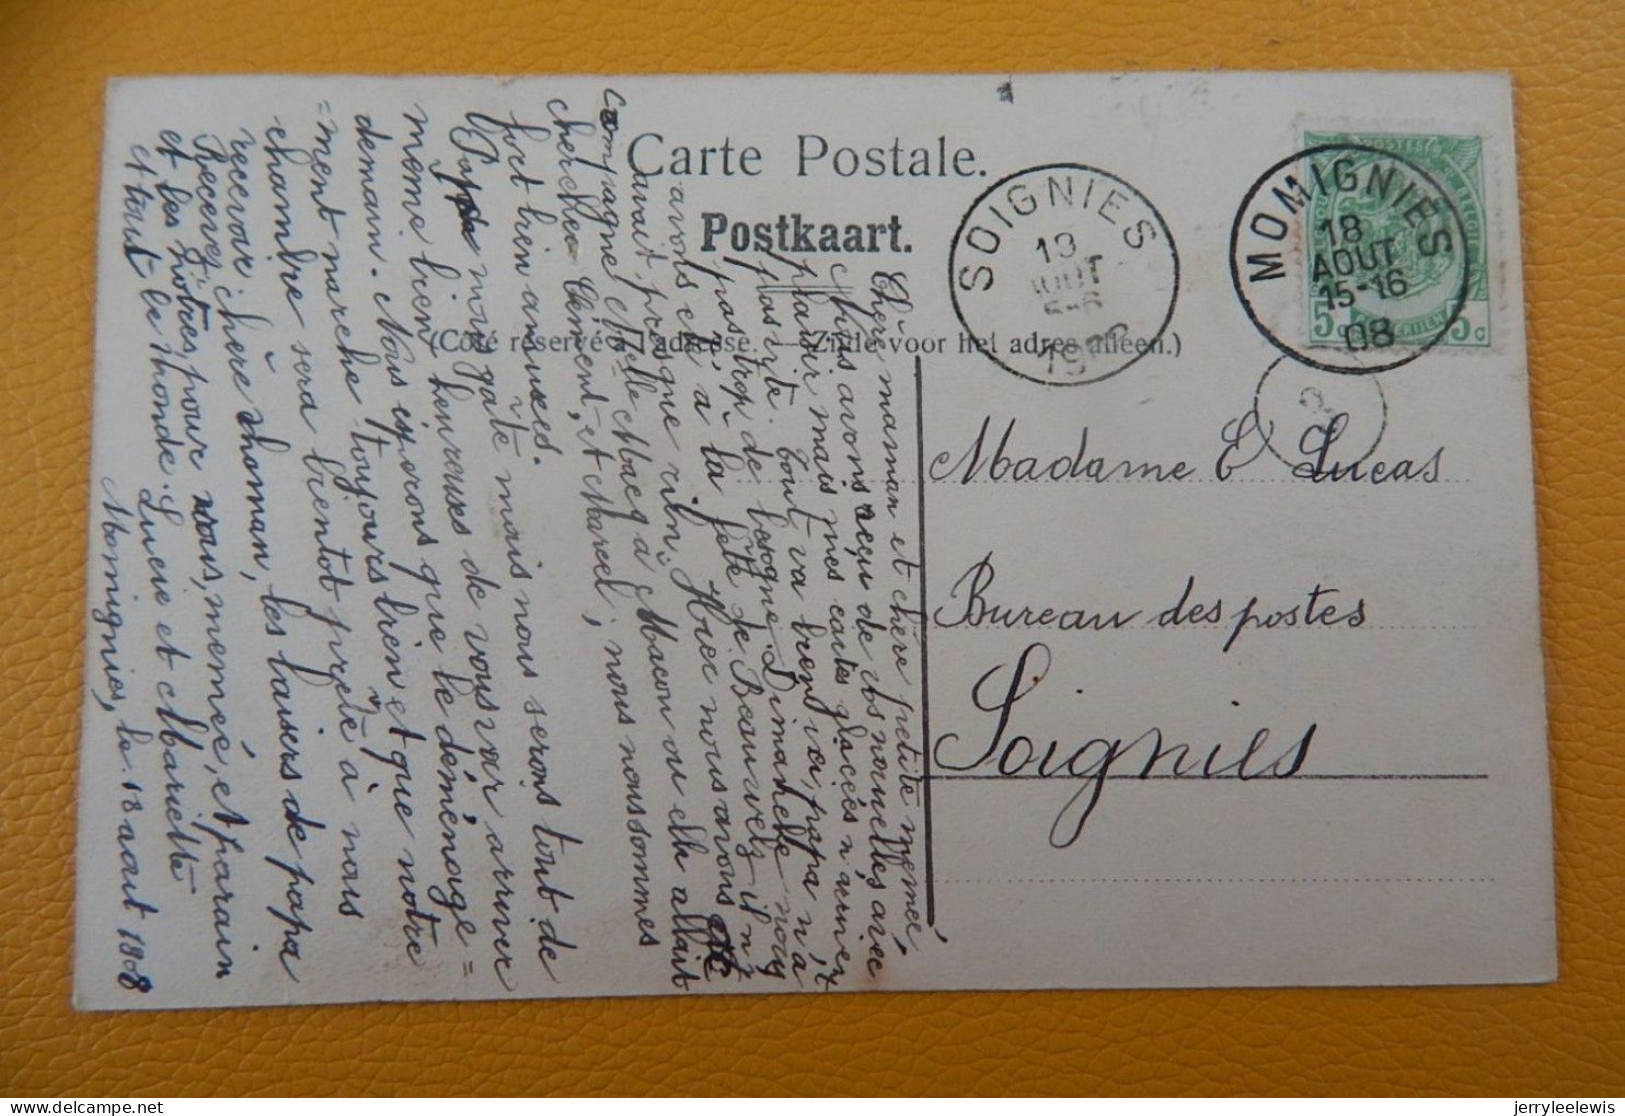 Carte Postale.
Postkaart.
(Côté réservé à l'adresse. — Zijde voor het adres alleen.)
SOIGNIES
19
AOUT
5-6
19
MOMIGNIES
18
AOUT
15-16
08
5c
5c
Madame E Lucas
Bureau des postes
Soignies
Chère maman et chère petite mémé
Nous avons reçu de vos nouvelles avec
plaisir mais mes cartes glacées n'arrivent
plus vite. Tout va bien ici, papa n'a
pas trop de besogne. Dimanche nous
avons été à la fête de Beauwelz il n'y
avait presque rien. Avec nous avons été
compagne Melle Macq à Macon ou elle allait
chercher Clément, et Marcel, nous nous sommes
fort bien amusés.
Papa nous gâte mais nous serons tout de
même bien heureuses de vous voir arriver
demain. Nous espérons que le déménage=
=ment marche toujours bien et que notre
chambre sera bientot prète à nous
recevoir chère maman, les baisers de papa
Recevez, pour vous, memé, et parain
et les nôtres
et tout le monde. Lucie et Mariette
Momignies, le 18 aout 1908
jerryleelewis